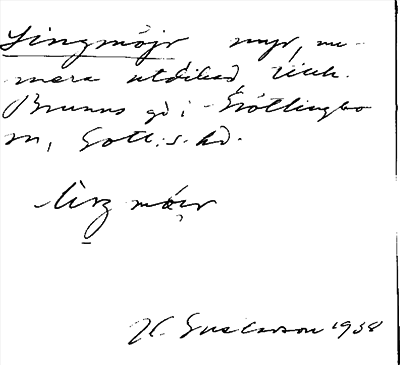 Lingmöjr myr, nu-
mera utdikad,
Brunns gd i Fröttingbo
sn, Gotl. s. hd.
H. Gustavson 1938